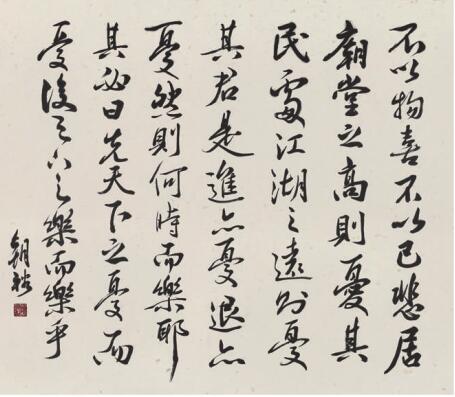 不以物喜不以己悲居
廟堂之高則憂其
民處江湖之遠則憂
其君是進亦憂退亦
憂然則何時而樂耶
其必曰先天下之憂而
憂後天下之樂而樂乎